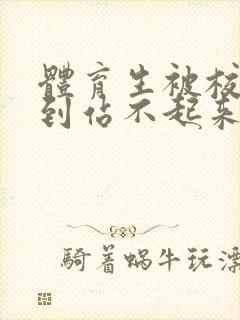 體育生被校
到佔不起來
騎着蝸牛玩漂